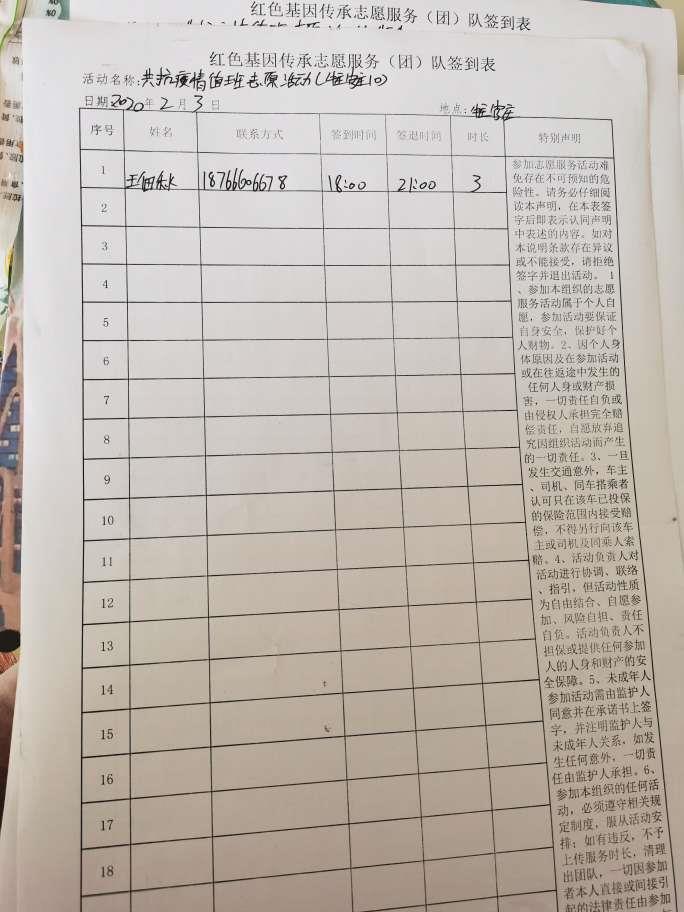 红色基因传承志愿服务（团）队签到表
红色基因传承志愿服务（团）队签到表
活动名称：共抗疫情值班志愿活动（
日期2020年2月3日 地点：
序号 姓名 联系方式 签到时间 签退时间 时长 特别声明
1 18766606678 18:00 21:00 3
2
3
4
5
6
7
8
9
10
11
12
13
14
15
16
17
18
参加志愿服务活动难
免存在不可预知的危
险性。请务必仔细阅
读本声明，在本表签
字后即表示认同声明
中表述的内容。如对
本说明条款存在异议
或不能接受，请拒绝
签字并退出活动。 1
、参加本组织的志愿
服务活动属于个人自
愿，参加活动要保证
自身安全，保护好个
人财物。2、因个人身
体原因及在参加活动
或在往返途中发生的
任何人身或财产损
害，一切责任自负或
由侵权人承担完全赔
偿责任，自愿放弃追
究因组织活动而产生
的一切责任。3、一旦
发生交通意外，车主
、司机、同车搭乘者
认可只在该车已投保
的保险范围内接受赔
偿，不得另行向该车
主或司机及同乘人索
赔。4、活动负责人对
活动进行协调、联络
、指引，但活动性质
为自由结合、自愿参
加、风险自担、责任
自负。活动负责人不
担保或提供任何参加
人的人身和财产的安
全保障。5、未成年人
参加活动需由监护人
同意并在承诺书上签
字，并注明监护人与
未成年人关系，如发
生任何意外，一切责
任由监护人承担。6、
参加本组织的任何活
动，必须遵守相关规
定制度，服从活动安
排；如有违反，不予
上传服务时长，清理
出团队，一切因参加
者本人直接或间接引
起的法律责任由参加